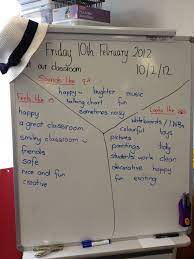 Friday 10th February 2012
our classroom
10/2/12
Sounds like
happy - laughter music
talking chart fun
sometimes noisy
Feels like
happy
a great classroom
smiley classroom
friends
safe
nice and fun
creative
Looks like
whiteboards / IWB
colourful toys
pictures
paintings tidy
students' work clean
decorative happy
fun exciting